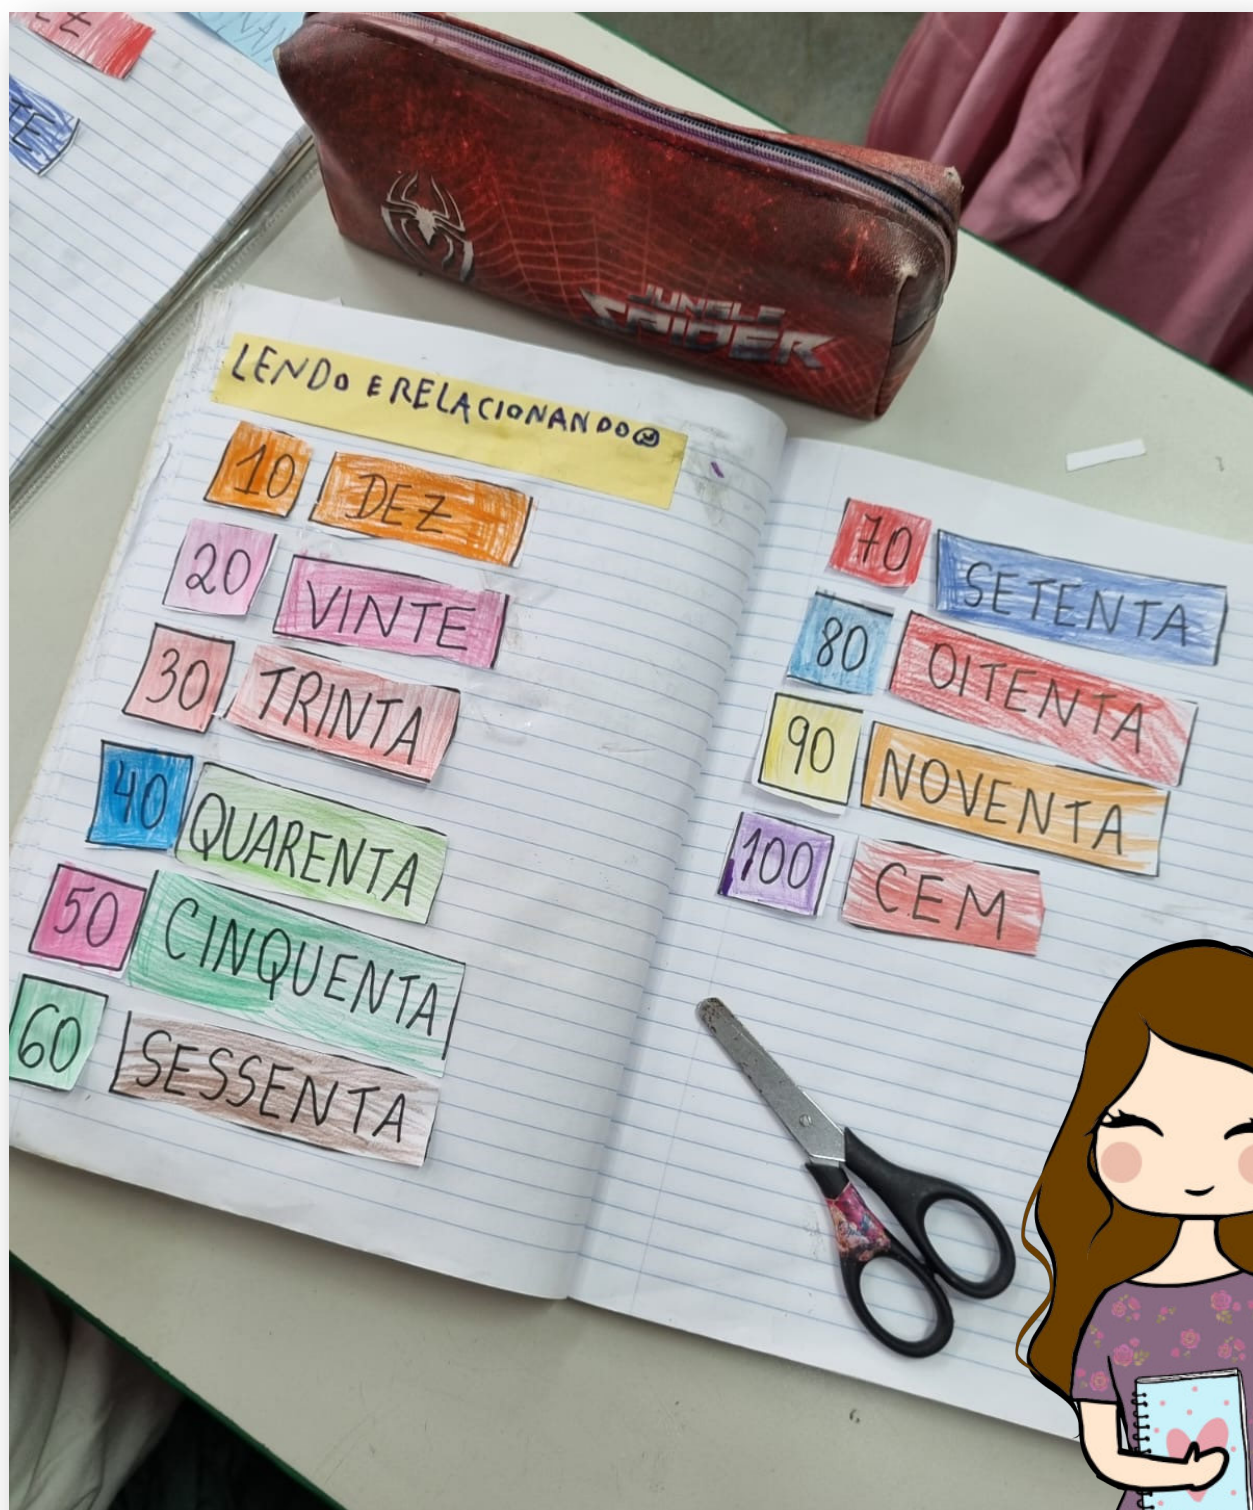 JUNGLE
SPIDER
LENDO E RELACIONANDO
10 DEZ
20 VINTE
30 TRINTA
40 QUARENTA
50 CINQUENTA
60 SESSENTA
70 SETENTA
80 OITENTA
90 NOVENTA
100 CEM